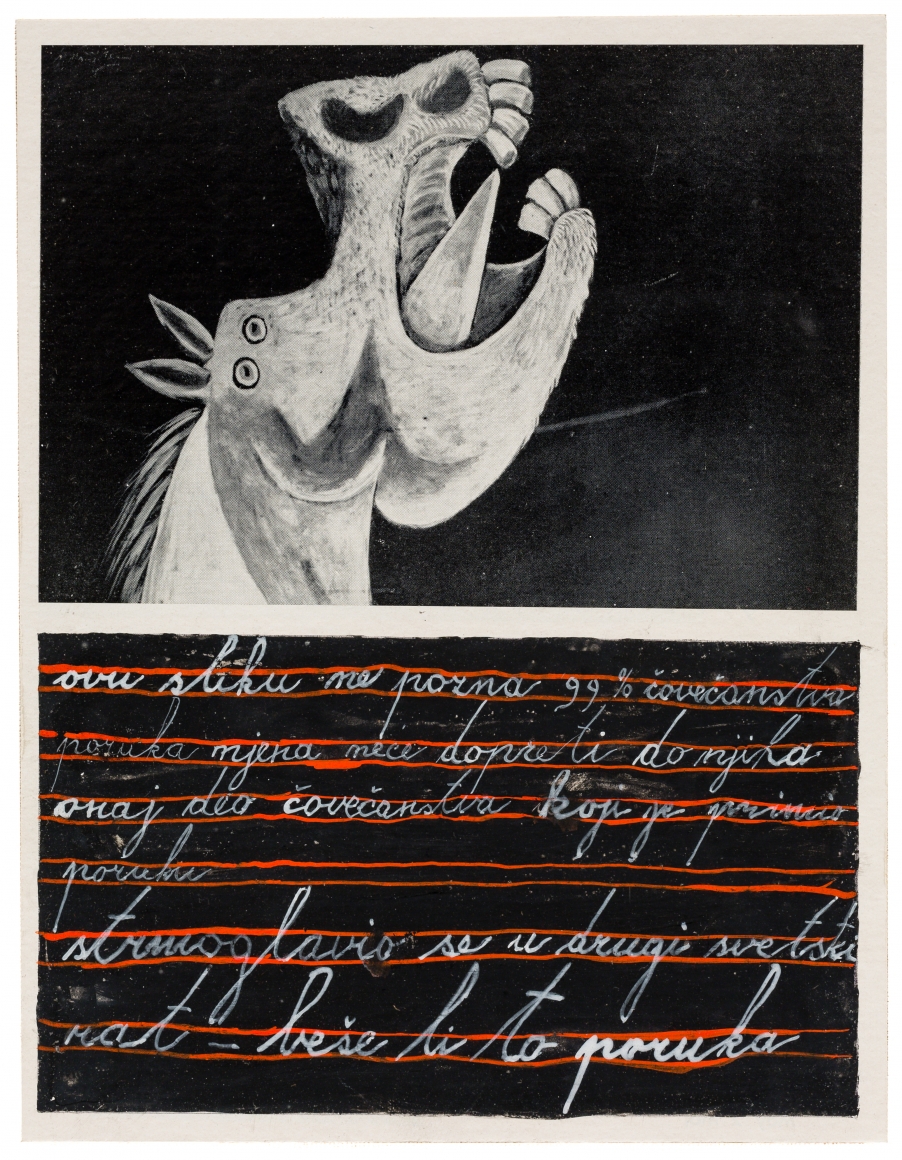 ovu sliku ne pozna 99% čovečanstva
poruka njena neće dopreti do njiha
onaj deo čovečanstva koji je primio
poruku
strmoglavio se u drugi svetski
rat – beše li to poruka